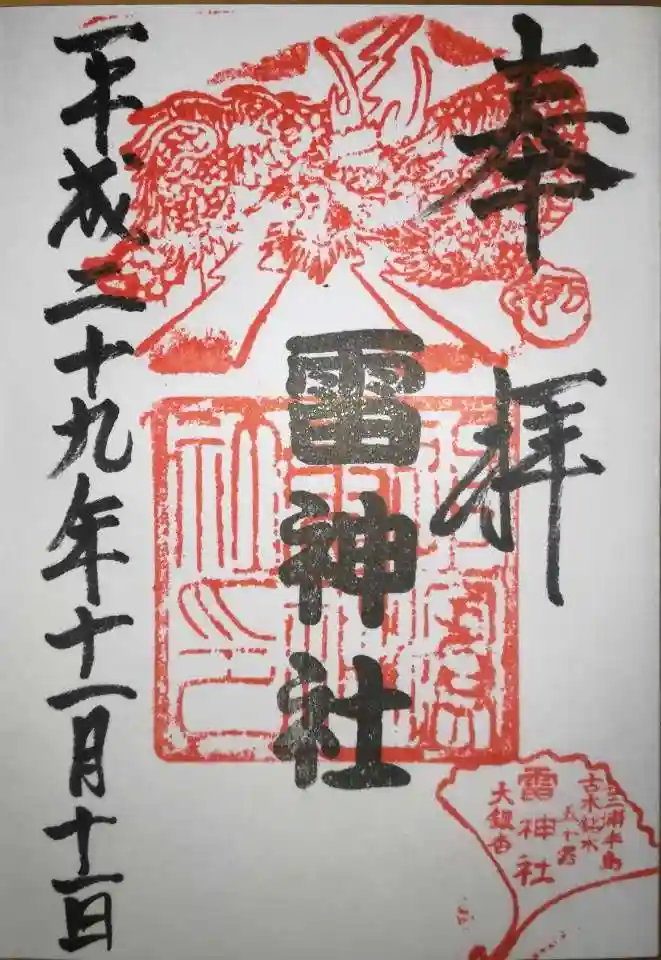 奉拝
雷神社
平成二十九年十一月十一日
三浦半島
古木名木
五十選
雷神社
大銀杏